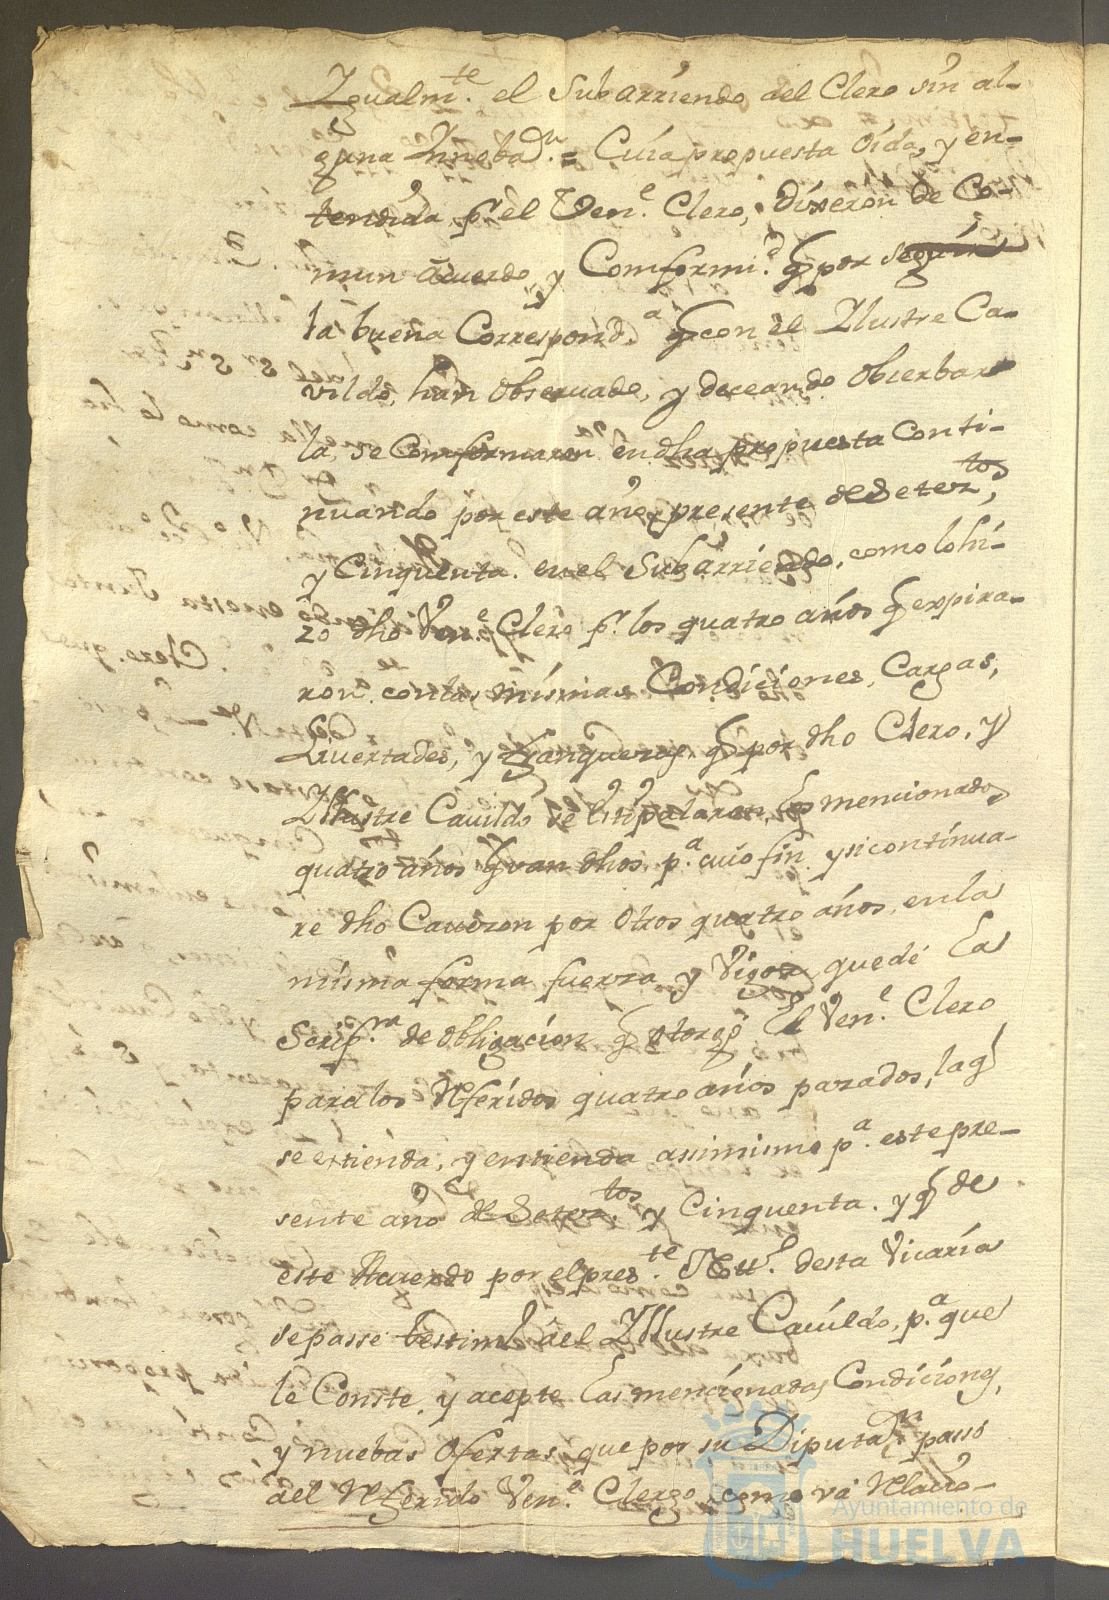 Ygualm.te el Subarriendo del Clero sin al-
guna Ynnobaz.n = Cuia propuesta oida, y en-
tendida p.r el Ven.e Clero, dixeron de Co-
mun acuerdo, y Comformi.d q por seguir
la buena Correspond.a q con el Yllustre Ca-
vildo, han observado, y deceando obserbar
la, se Comformaron en dha propuesta conti-
nuando por este año presente de Setez.tos
y Cinquenta. en el Subarriendo, como lo hi-
zo dho Ven.e Clero p.r los quatro años q expira-
ron. con las mismas Condiciones, Cargas,
Livertades, y franquezas, q por dho Clero, y
Yllustre Cavildo se estipularon, en mencionados
quatro años q van dhos, p.a cuio fin y si continua-
re dho Caudron por otros quatro años, en la
misma forma fuerza y vigor quede la
Scrip.ra de obligacion q otorgó el Ven.e Clero
para los Referidos quatro años pasados, la q
se estienda, y entienda assimismo p.a este pre-
sente año de Setez.tos y Cinquenta. y q de
este Acuerdo por el pres.te Nott.o desta Vicaría
se passe testim.o al Yllustre Cavildo, p.a que
le Conste, y acepte las mencionadas Condiciones,
y nuebas ofertas, que por su Diputaz.n passó
del Referido Ven.e Clero, como va Relacio-
Ayuntamiento de
HUELVA